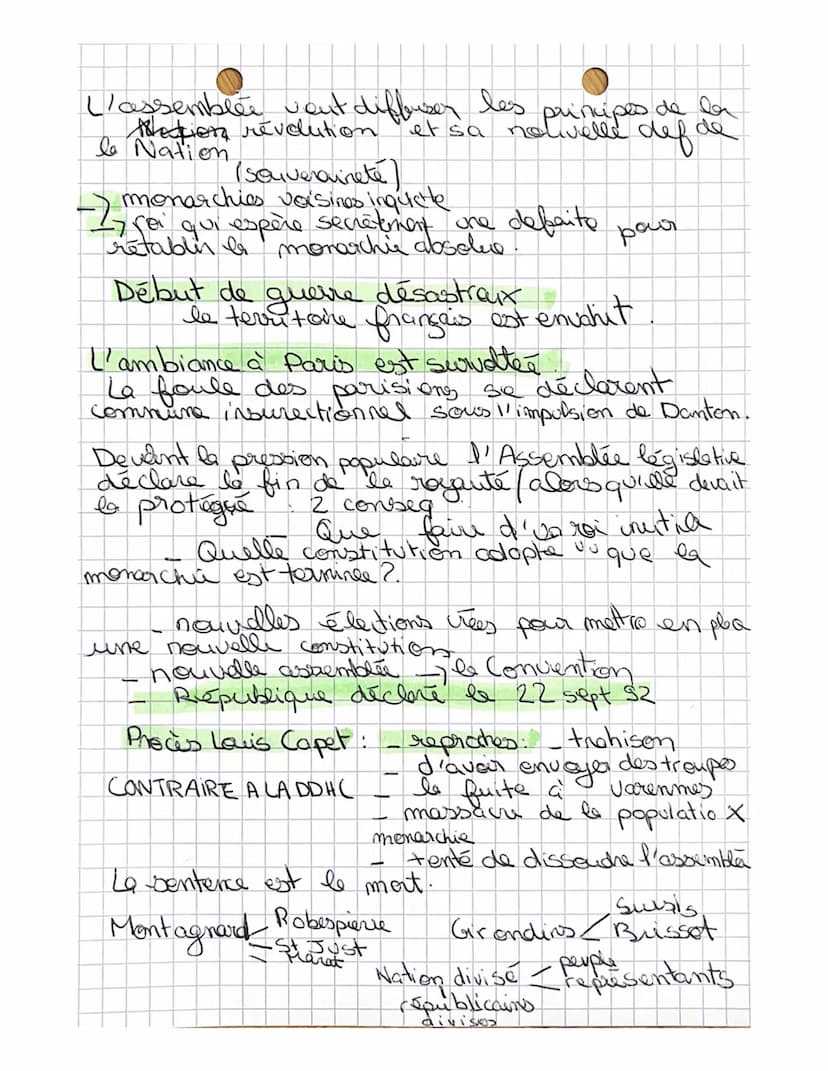 L'assemblée veut diffuser les principes de la
Nation révolution et sa nouvelle def de
la Nation
(souveraineté)
-> monarchies voisines inquiète
↳ roi qui espère secrètement une defaite pour
rétablir la monarchie absolue.
Début de guerre désastreux
le territoire français est envahit.
L'ambiance à Paris est survoltée.
La foule des parisiens se déclarent
commune insurectionnel sous l'impulsion de Danton.
Devant la pression populaire l'Assemblée législative
déclare la fin de la royauté (alors qu'elle devait
la protégée : 2 conseq
Que faire d'un roi inutile
- Quelle constitution adopté vu que la
monarchie est terminée ?.
- nouvelles élections crées pour mettre en place
une nouvelle constitution
- nouvelle assemblée -> la Convention
- République déclaré le 22 sept 92
Procès Louis Capet : - reproches : - trahison
- d'avoir envoyer des troupes
CONTRAIRE A LA DDHC - la fuite à Varennes
- massacre de la populatio X
monarchie
- tenté de dissoudre l'assemblé
La sentence est la mort.
Sursis
Montagnard - Robespierre Girondins < Brissot
- St Just
- Marat
peuple
Nation divisé < représentants
républicains
divises